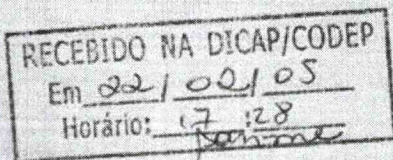 RECEBIDO NA DICAP/CODEP
Em 22/02/05
Horário: 17:28